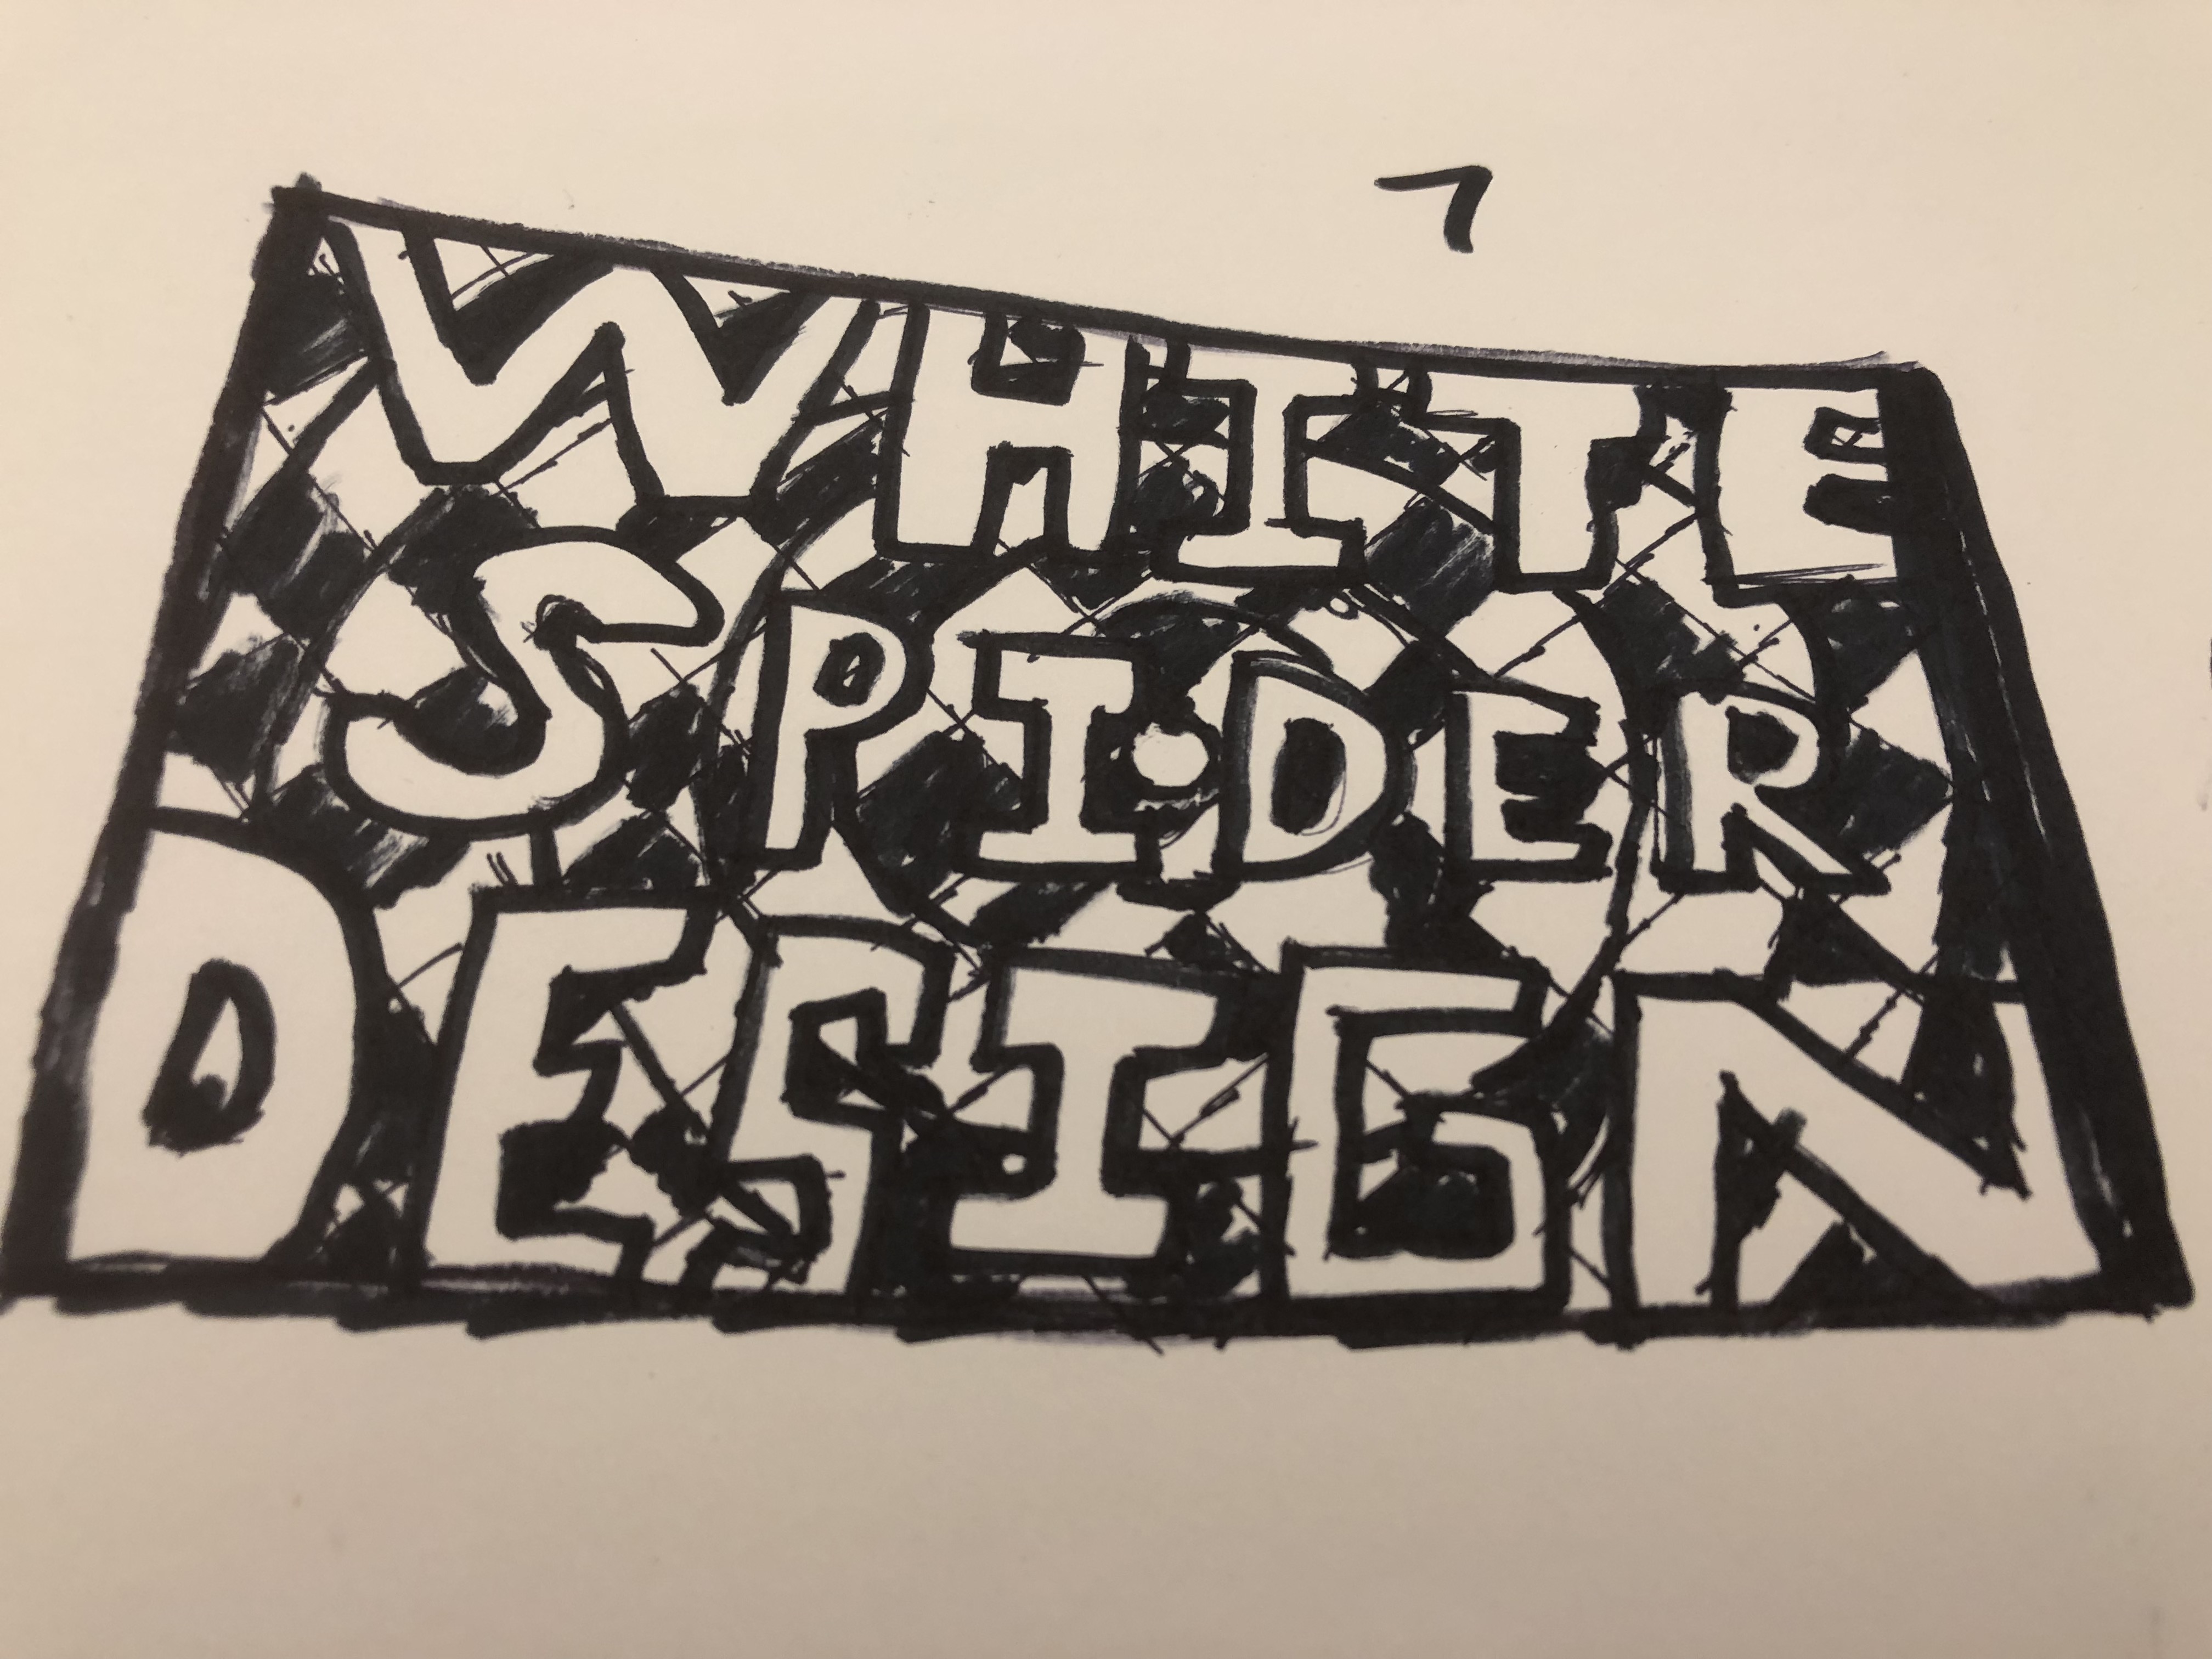 WHITE
SPIDER
DESIGN